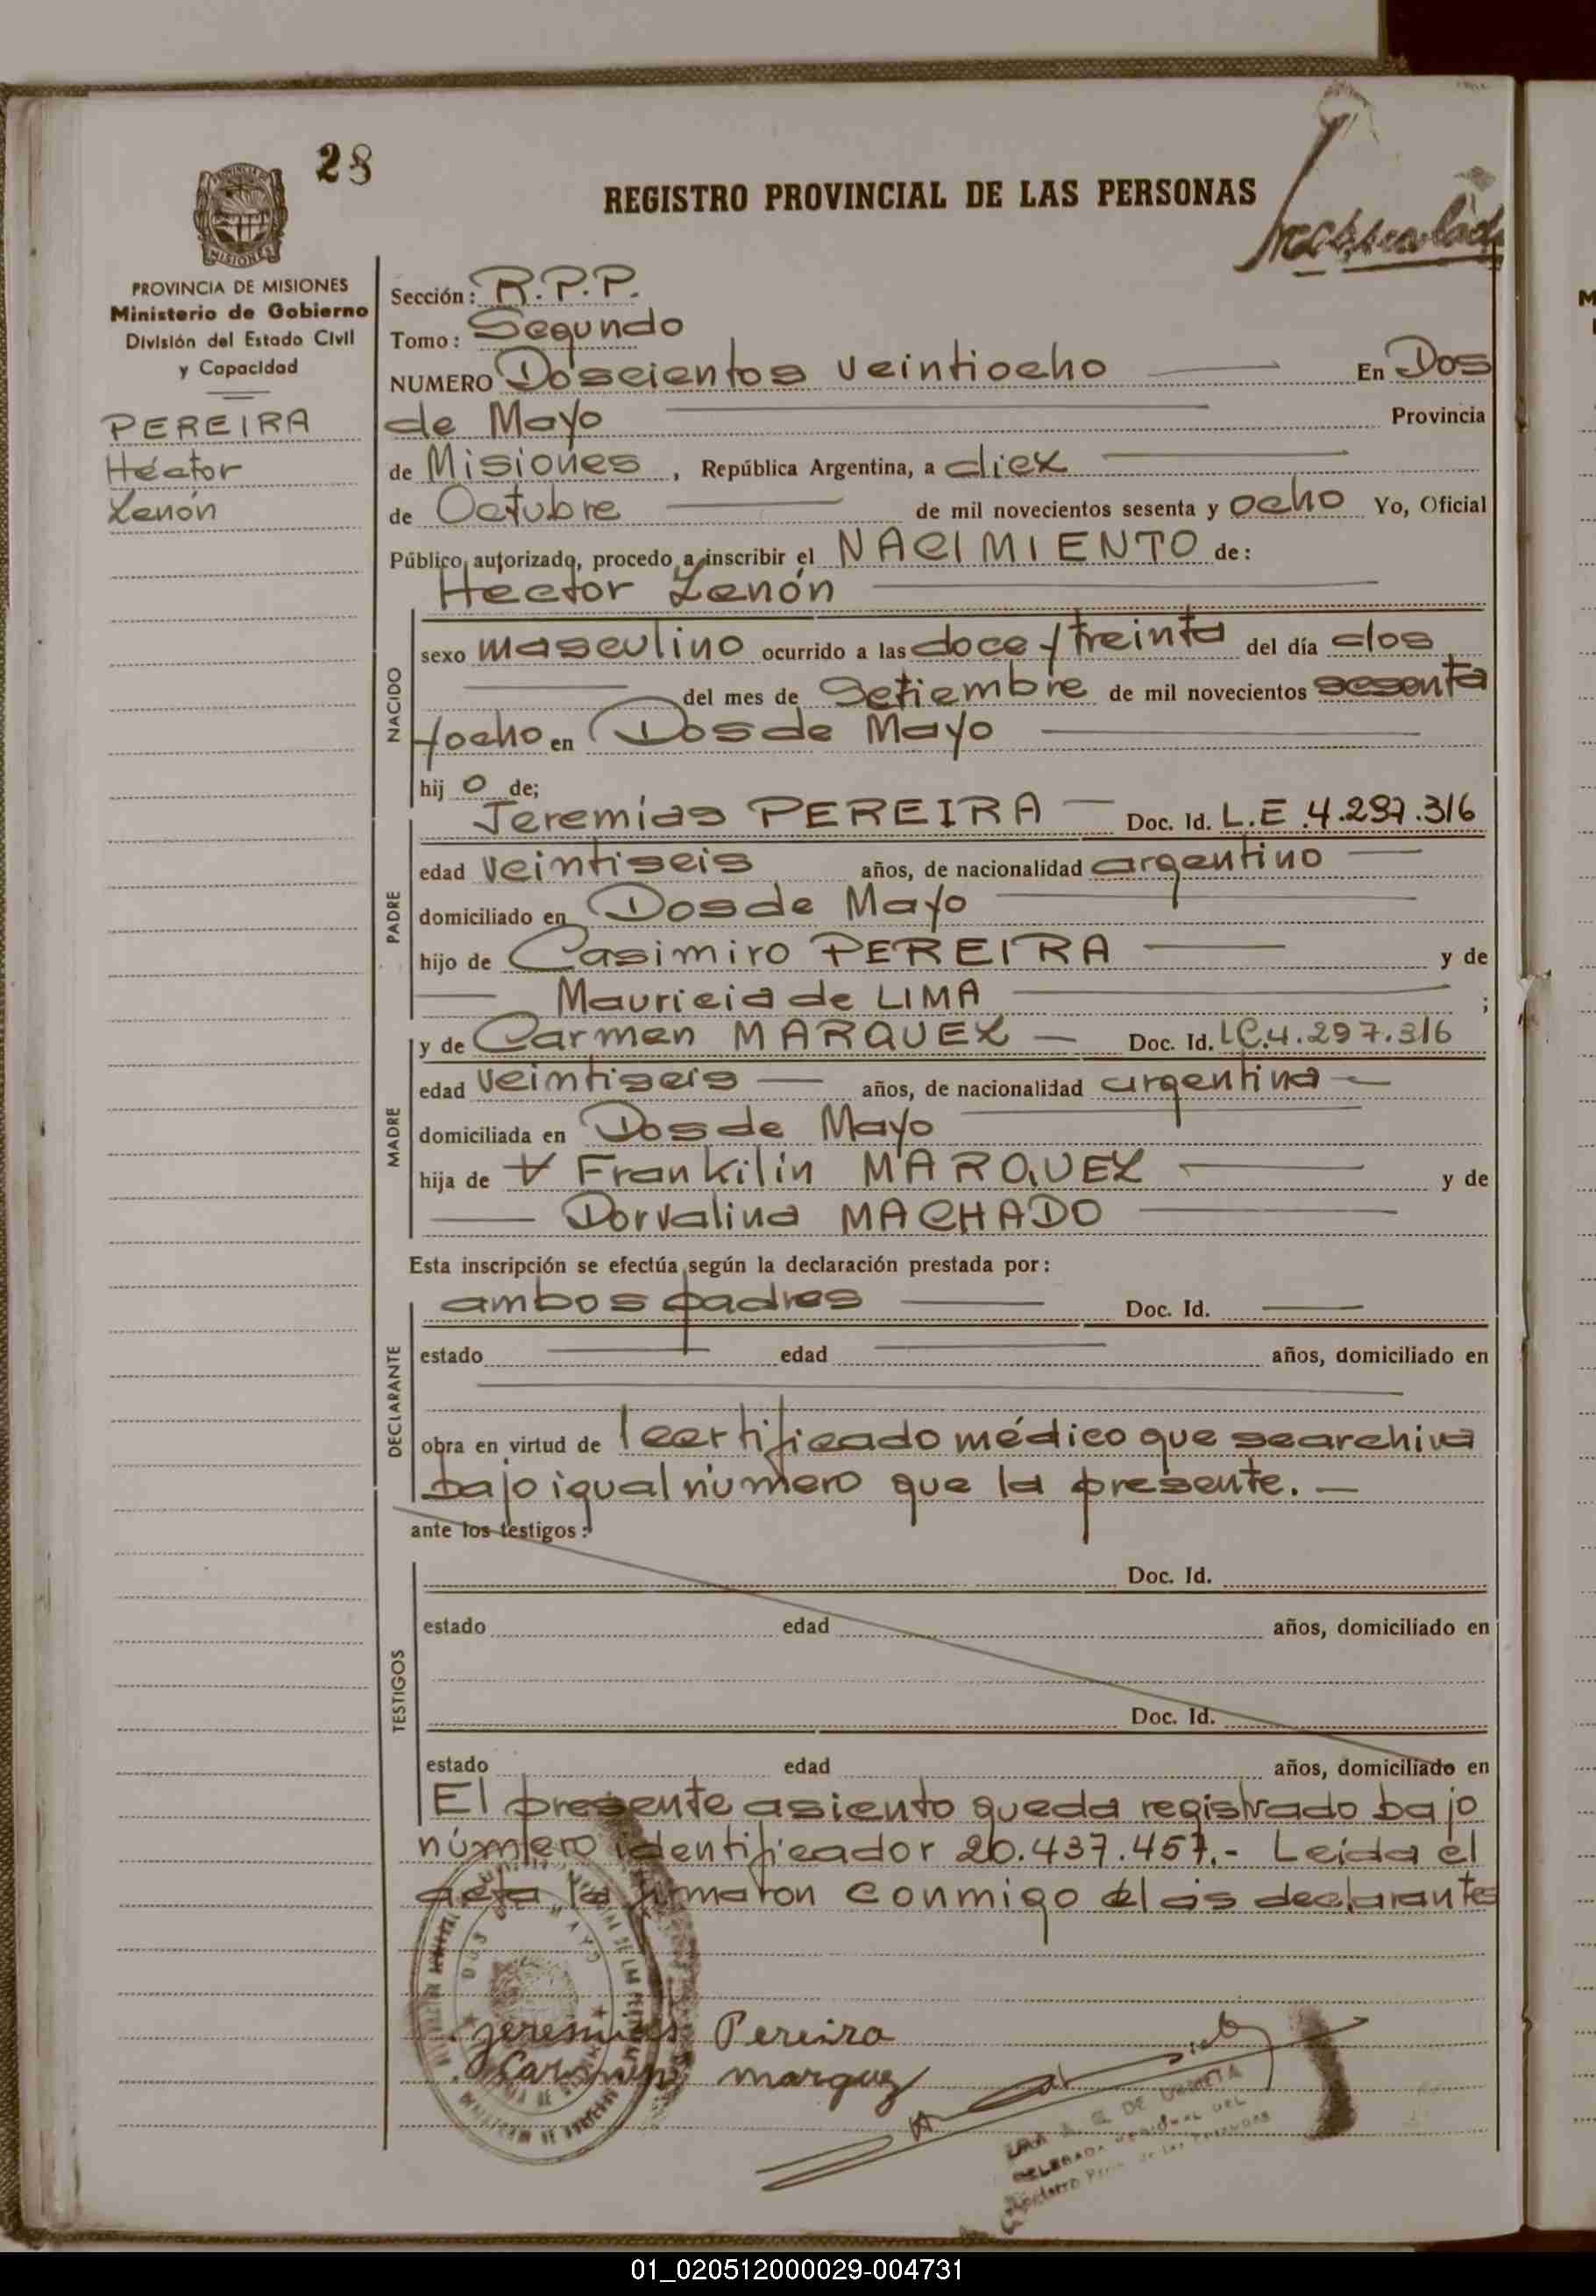 28
REGISTRO PROVINCIAL DE LAS PERSONAS
MISIONES
PROVINCIA DE MISIONES
Ministerio de Gobierno
División del Estado Civil
y Capacidad
PEREIRA
Héctor
Zenón
Sección: R.P.P.
Tomo: Segundo
NUMERO Doscientos veintiocho En Dos
de Mayo Provincia
de Misiones, República Argentina, a diez
de Octubre de mil novecientos sesenta y ocho Yo, Oficial
Público autorizado, procedo a inscribir el NACIMIENTO de:
Hector Zenón
NACIDO
sexo masculino ocurrido a las doce y treinta del día dos
del mes de Setiembre de mil novecientos sesenta
y ocho en Dos de Mayo
hij o de;
PADRE
Jeremías PEREIRA Doc. Id. L.E 4.297.316
edad veintiseis años, de nacionalidad argentino
domiciliado en Dos de Mayo
hijo de Casimiro PEREIRA y de
Mauricia de LIMA ;
MADRE
y de Carmen MARQUEZ Doc. Id. LC.4.297.316
edad veintiseis años, de nacionalidad argentina
domiciliada en Dos de Mayo
hija de Frankilin MARQUEZ y de
Dorvalina MACHADO
Esta inscripción se efectúa según la declaración prestada por:
DECLARANTE
ambos padres Doc. Id.
estado edad años, domiciliado en
obra en virtud de 1 certificado médico que se archiva
bajo igual número que la presente.-
ante los testigos:
TESTIGOS
Doc. Id.
estado edad años, domiciliado en
Doc. Id.
estado edad años, domiciliado en
El presente asiento queda registrado bajo
número identificador 20.437.457.- Leída el
acta la firmaron conmigo los declarantes
DOS DE MAYO
Jeremias Pereira
Carmen marquez
DE URRETA
DELEGADA REGIONAL DEL
Registro Prov. de las Personas
01_020512000029-004731